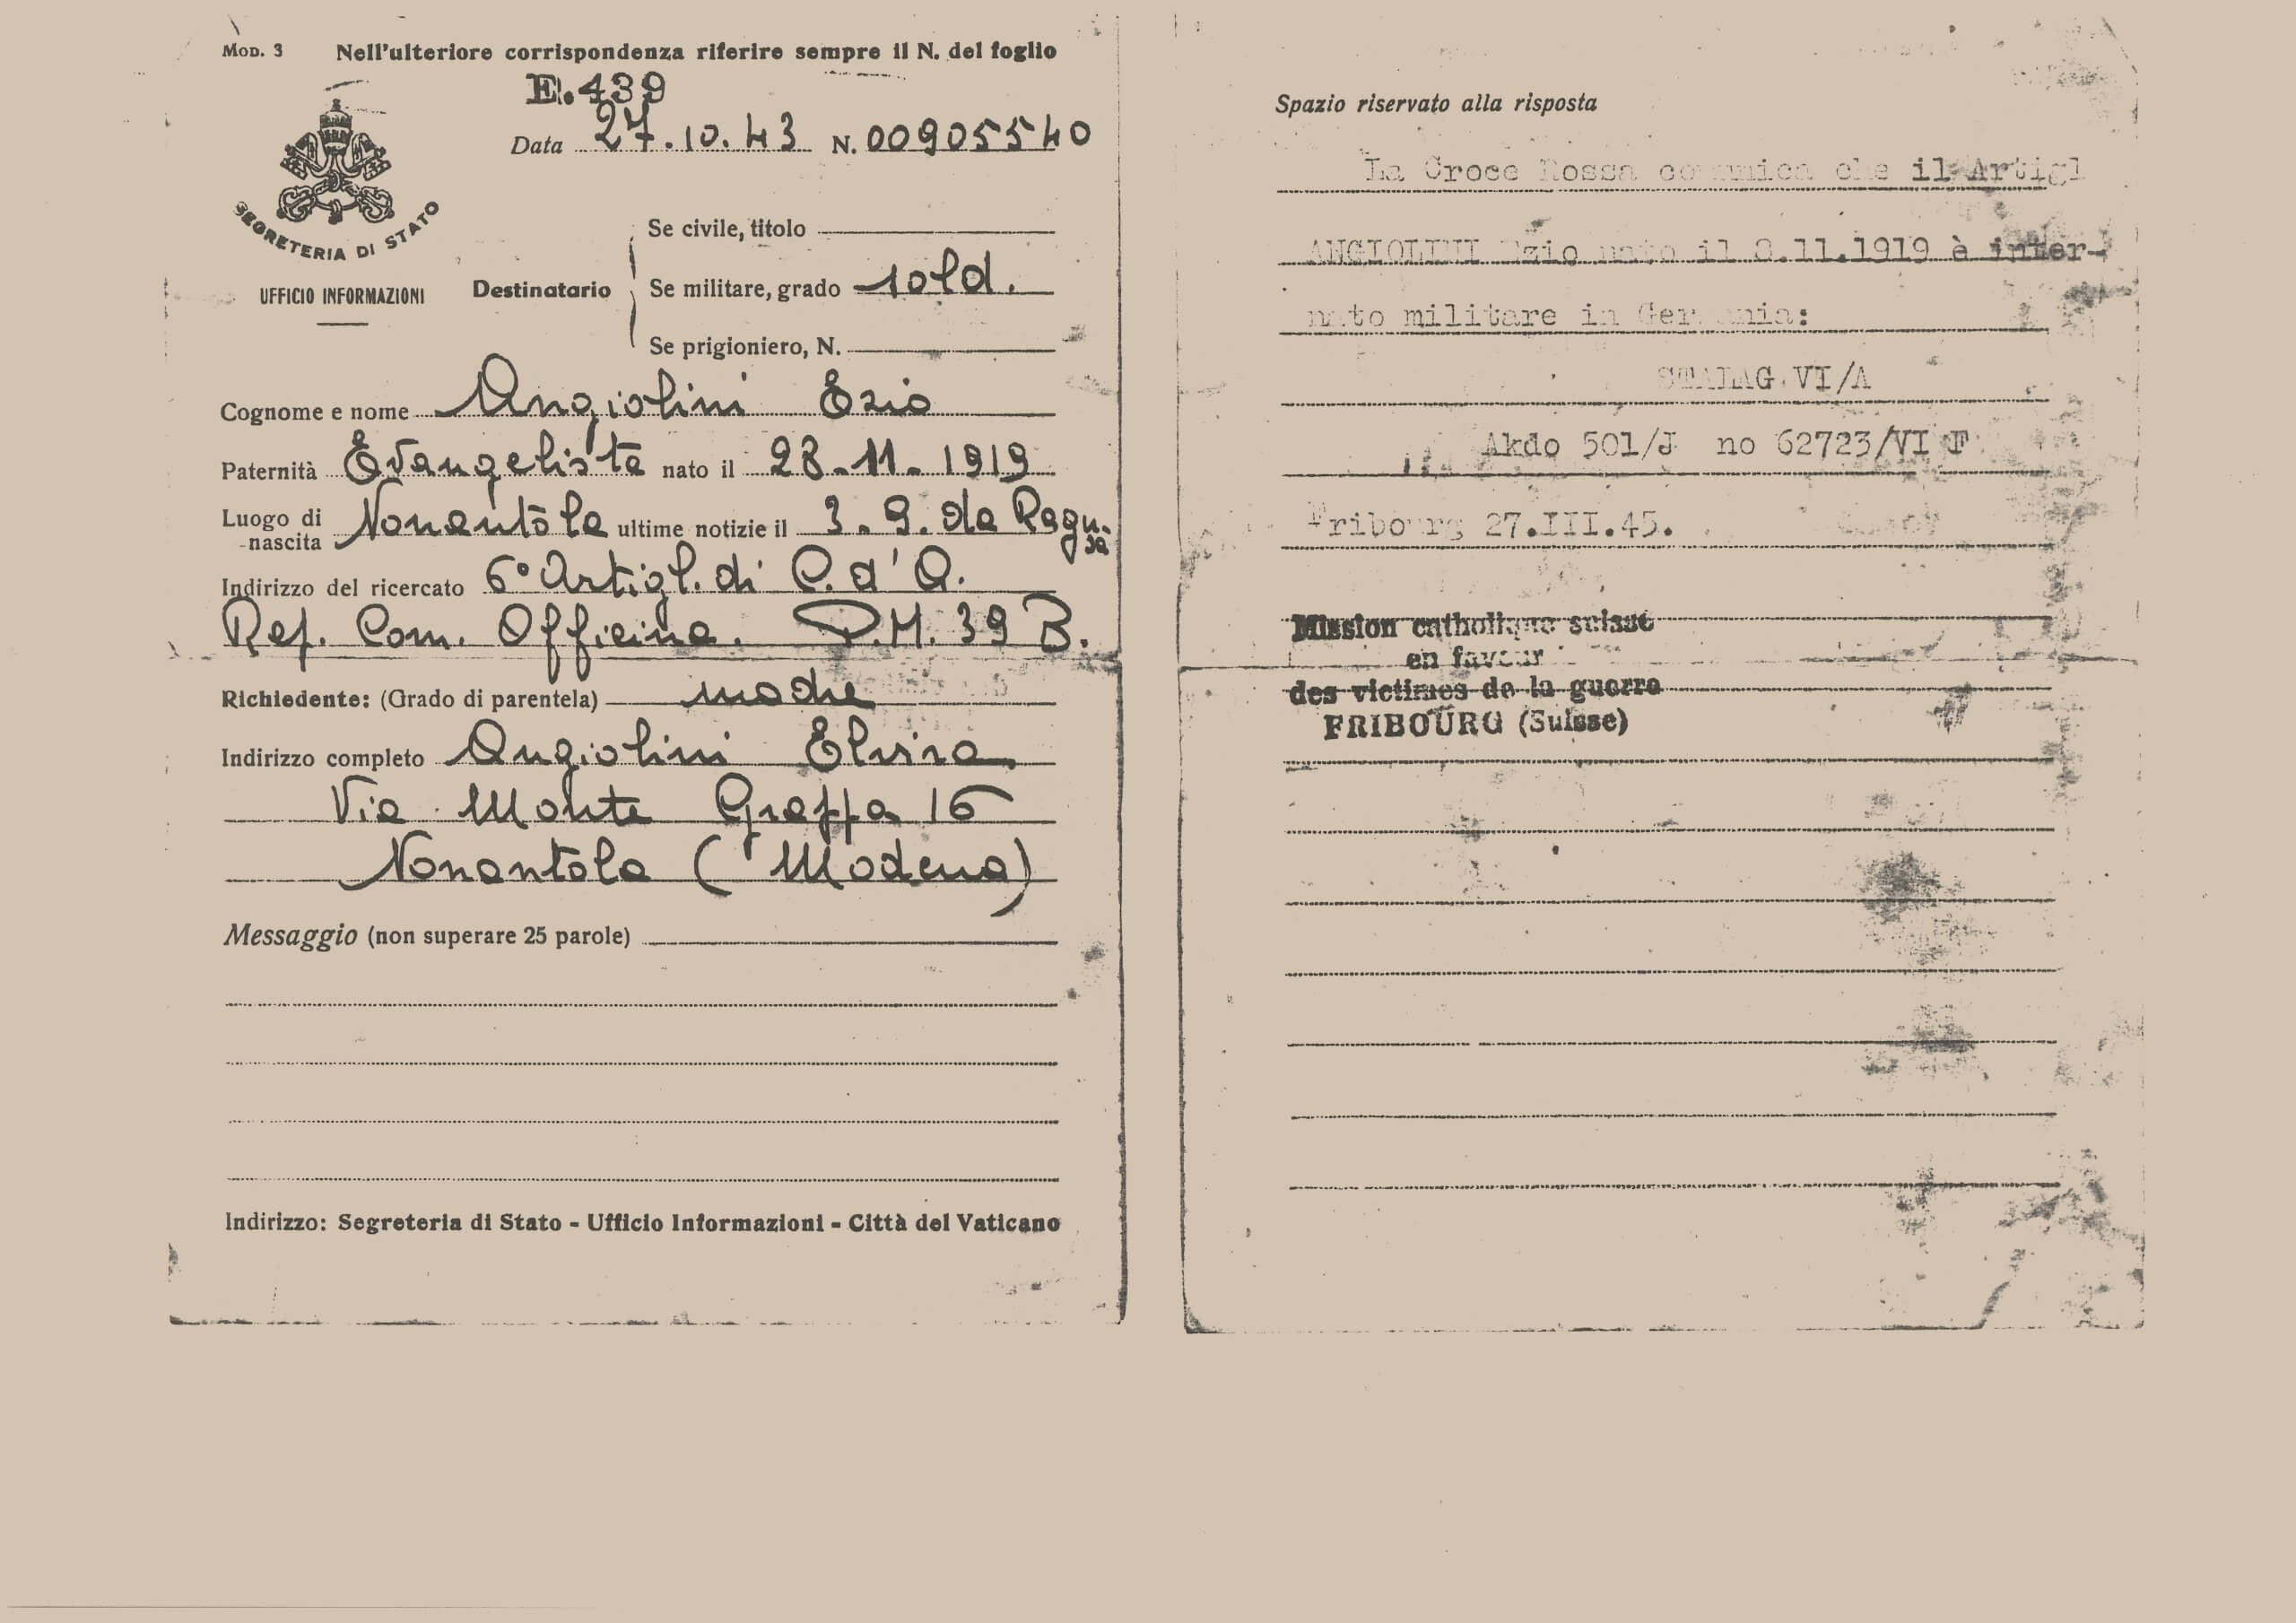 Mod. 3 Nell'ulteriore corrispondenza riferire sempre il N. del foglio
E.439
Data 27.10.43 N. 00905540
SEGRETERIA DI STATO
UFFICIO INFORMAZIONI
Destinatario
Se civile, titolo
Se militare, grado sold.
Se prigioniero, N.
Cognome e nome Angiolini Ezio
Paternità Evangelista nato il 28-11-1919
Luogo di nascita Nonantola ultime notizie il 3.9. da Ragusa
Indirizzo del ricercato 6° Artigl. di C. d'A.
Rep. Com. Officina. P.M. 39 B.
Richiedente: (Grado di parentela) madre
Indirizzo completo Angiolini Elvira
Via Monte Grappa 16
Nonantola (Modena)
Messaggio (non superare 25 parole)
Indirizzo: Segreteria di Stato - Ufficio Informazioni - Città del Vaticano
Spazio riservato alla risposta
La Croce Rossa comunica che il Artigl
ANGIOLINI Ezio nato il 8.11.1919 è inter-
nato militare in Germania:
STALAG VI/A
Akdo 501/J no 62723/VI F
Fribourg 27.III.45.
Mission catholique suisse
en faveur
des victimes de la guerre
FRIBOURG (Suisse)